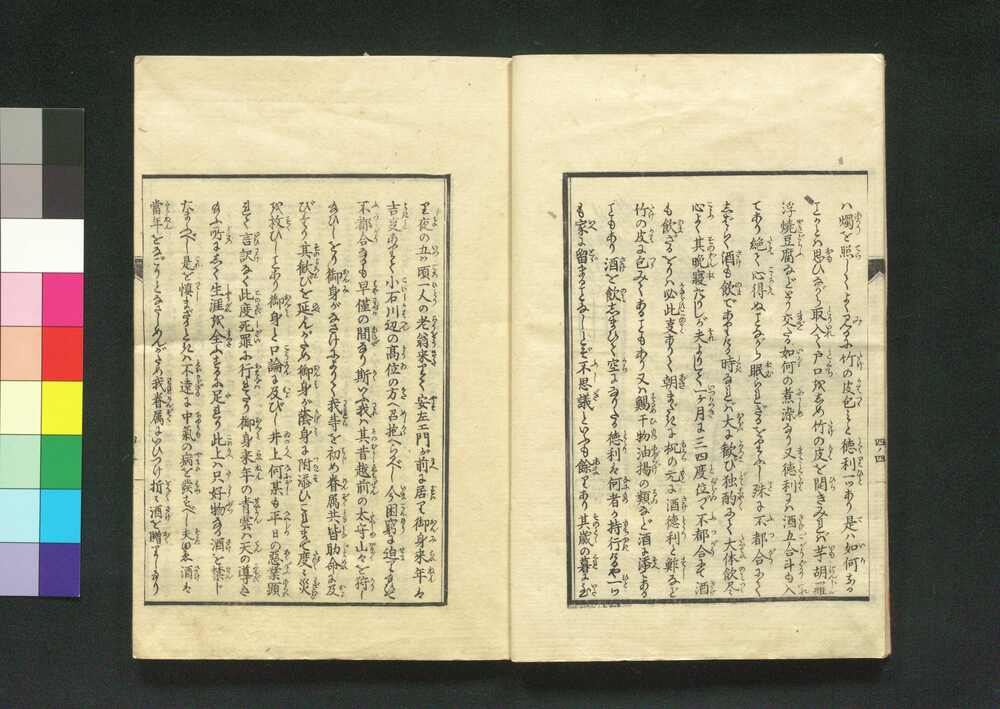 ハ燭を照してよく〳〵みるに竹の皮包と徳利一ツあり是ハ如何なる
ことかとハ思ひながら取入て戸口を〆め竹の皮を開きみれバ芋胡羅
浮焼豆腐などとり交たる如何の煮染なり又徳利にハ酒五合斗も入
てあり絶て心得ぬことながら眠られざるをりから殊に不都合にて
しばらく酒も飲であらざる時なれハ大に歓び独酌にて大体飲尽
心よく其晩寝たりしが夫よりして一ヶ月に三四度位づゝ不都合にて酒
も飲ざるをりハ必此事ありて朝まだきに枕の元に酒徳利と鮓など
竹の皮に包みてあることもあり又ハ鯣干物油揚の類など酒に添てある
こともあり酒を飲しまひて空になりたる徳利ハ何者か持行にや一ツ
も家に留まることなしとぞ不思議といふも餘りあり其歳の暮に至
り夜の五ツ頃一人の老翁来りて安左エ門が前に居り御身来年ハ
吉夏ありて小石川辺の高位の方へ召抱らるべし今困窮に迫て
不都合なるも早僅の間なり斯いふ我ハ其昔越前の太守山々を狩し
給ひしをり御身がなさけによりて我等を初め眷属共皆助命に及
びたり其歓びを延んがため御身が蔭身に附添ひこれまで度々災
を救ひしことあり御身と口論に及びし井上何某も平日の悪業顕
れて言訳なく此度死罪に行はれたり御身来年の青雲ハ天の導き
給ふ所にして生涯を全ふするに足れり此上ハ只好物の酒を禁じ
たまふべし是を慎まざるときハ不遠に中氣の病を發すべし夫ゆゑ酒ハ
當年をかぎりとなさしめんがため我眷属にいひつけ折々酒を贈りしなり
四ノ四